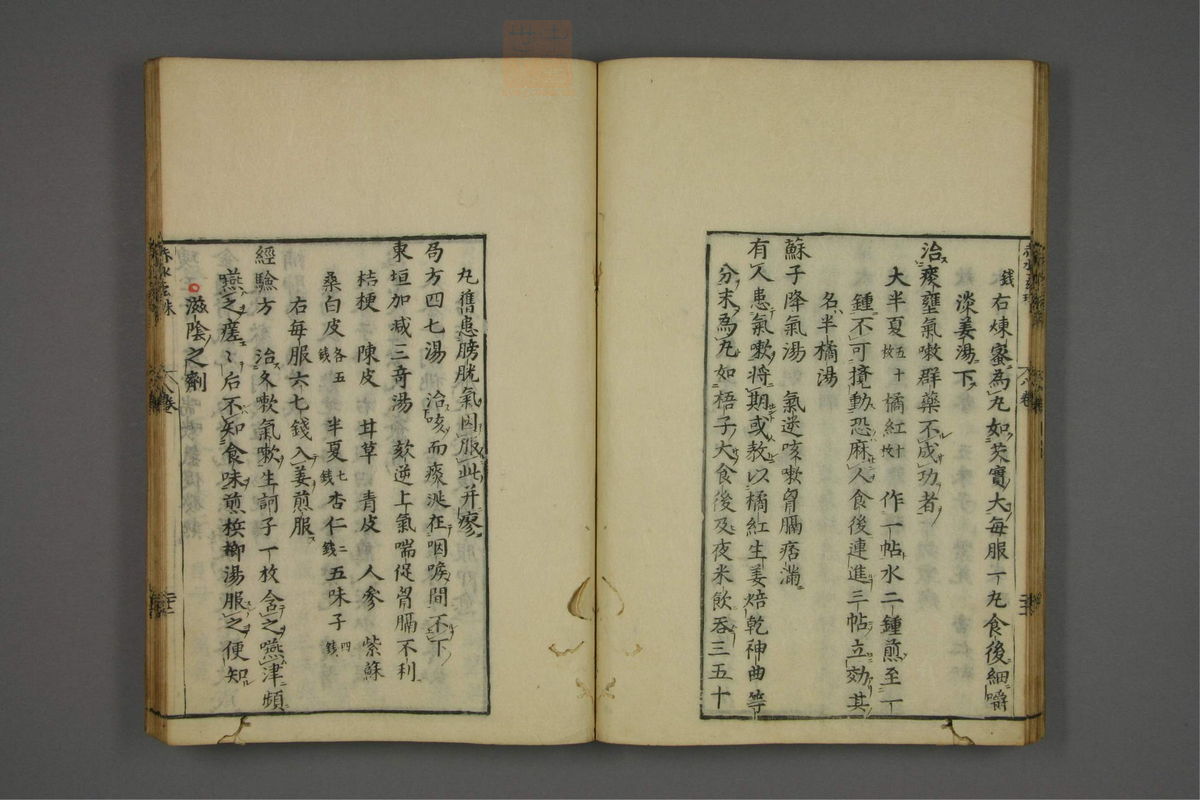 錢右煉蜜為丸如芡實大每服一丸食後細嚼
淡姜湯下
治痰壅氣嗽群藥不成功者
大半夏五十枚橘紅十枚作一帖水二鍾煎至一
鍾不可攪動恐麻人食後連進三帖立効其
名半橘湯
蘇子降氣湯 氣逆咳嗽胷膈痞滿
有人患氣嗽將期或教以橘紅生姜焙乾神曲等
分末為丸如梧子大食後及夜米飲吞三五十
丸舊患膀胱氣因服此并瘳
局方四七湯 治咳而痰涎在咽喉間不下
東垣加減三竒湯 欬逆上氣喘促胷膈不利
桔梗 陳皮 甘草 青皮 人參 紫蘇
桑白皮各五錢 半夏七錢 杏仁二錢 五味子四錢
右每服六七錢入姜煎服
經驗方 治久嗽氣嗽生訶子一枚含之嚥津頻
嚥之瘥瘥后不知食味煎梹榔湯服之便知
滋陰之劑